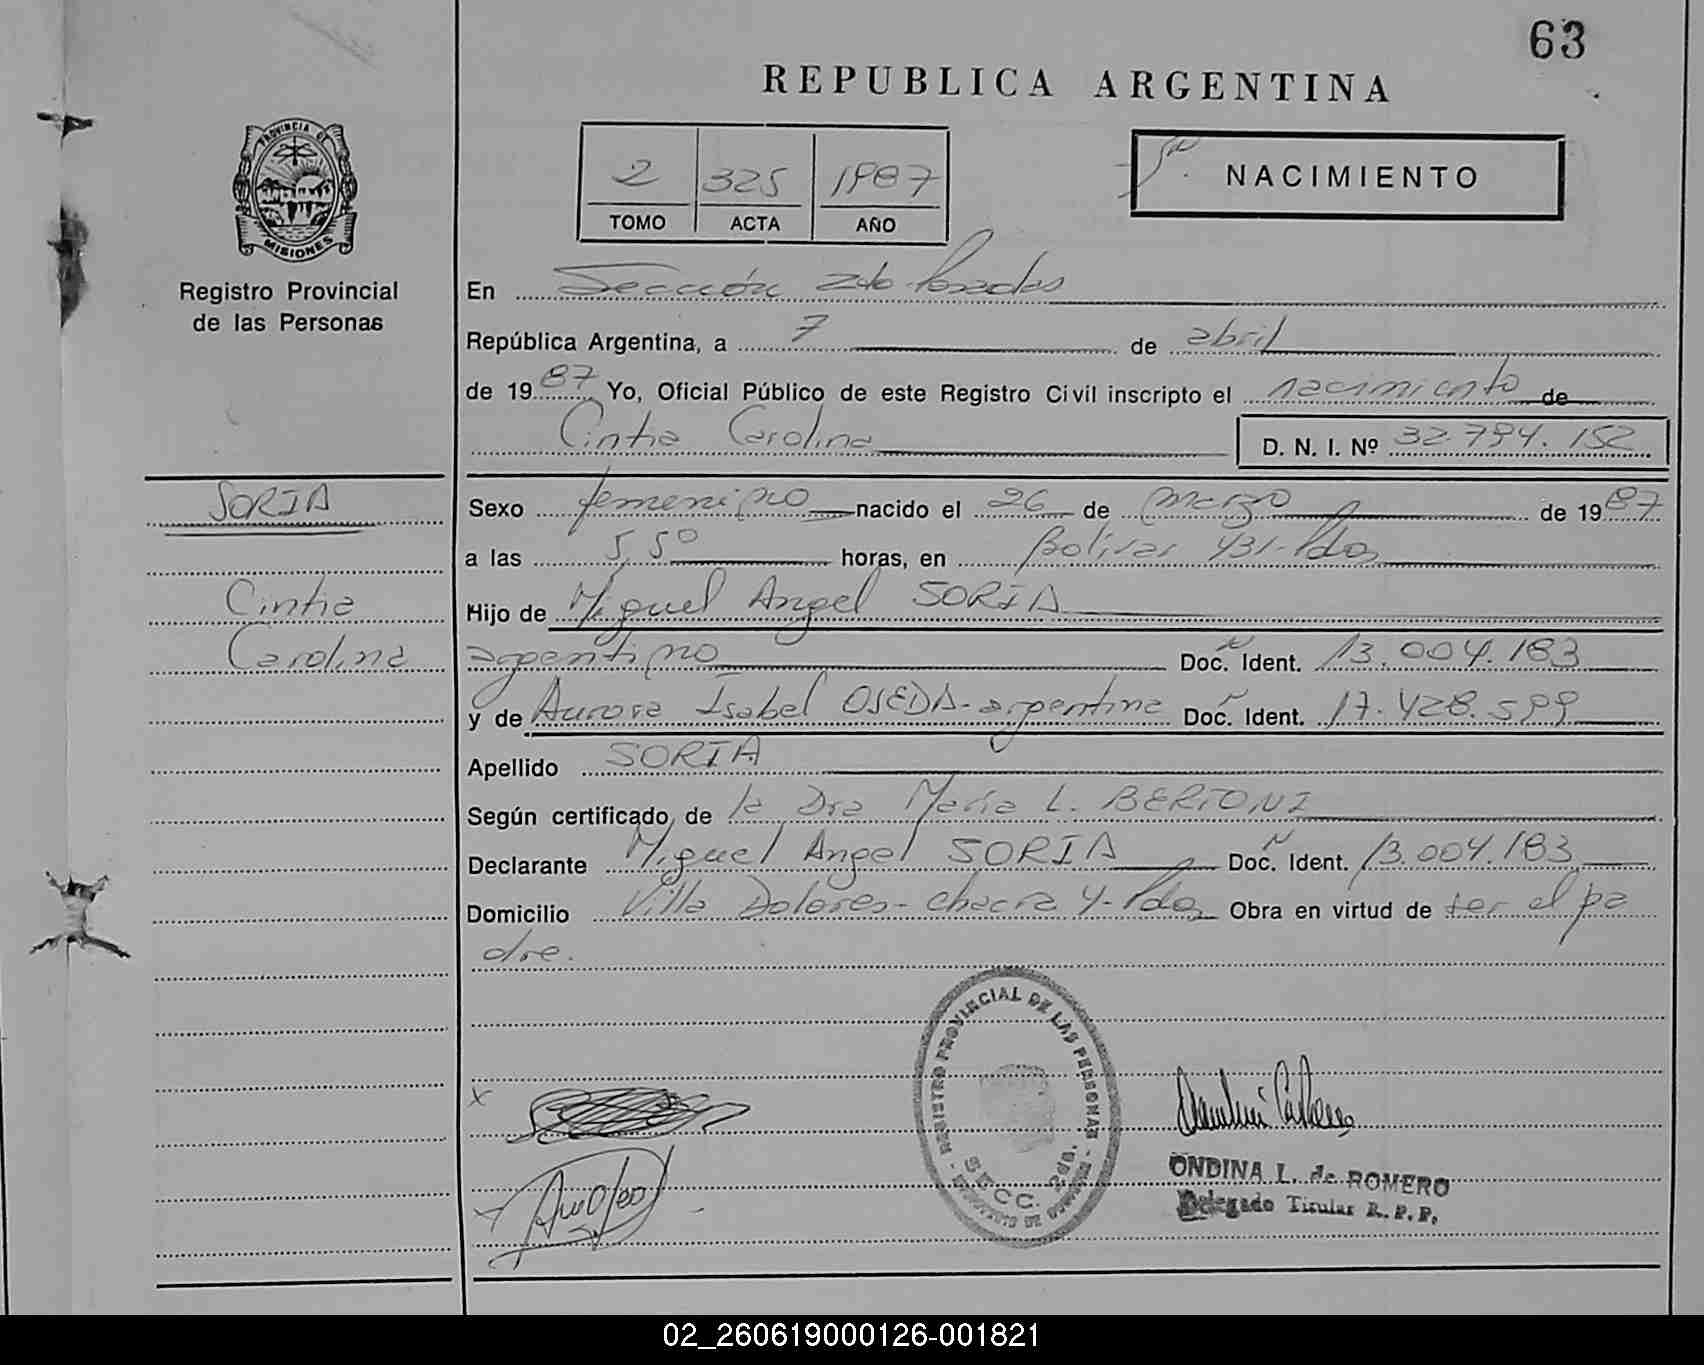 63
REPUBLICA ARGENTINA
PROVINCIA DE
MISIONES
Registro Provincial
de las Personas
2 325 1987
TOMO ACTA AÑO
NACIMIENTO
En Sección 2da Posadas
República Argentina, a 7 de abril
de 1987 Yo, Oficial Público de este Registro Civil inscripto el nacimiento de
Cintia Carolina D. N. I. Nº 32.794.152
SORIA
Cintia
Carolina
Sexo femenino nacido el 26 de marzo de 1987
a las 5,50 horas, en Bolívar 431-Pdas
Hijo de Miguel Angel SORIA
argentino Doc. Ident. 13.004.183
y de Aurora Isabel OJEDA-argentina Doc. Ident. 17.428.599
Apellido SORIA
Según certificado de la Dra María L. BERTONI
Declarante Miguel Angel SORIA Doc. Ident. 13.004.183
Domicilio Villa Dolores-chacra 4-Pdas Obra en virtud de ser el pa
dre.
REGISTRO PROVINCIAL DE LAS PERSONAS
SECC. 2da.
ONDINA L. de ROMERO
Delegado Titular R. P. P.
02_260619000126-001821